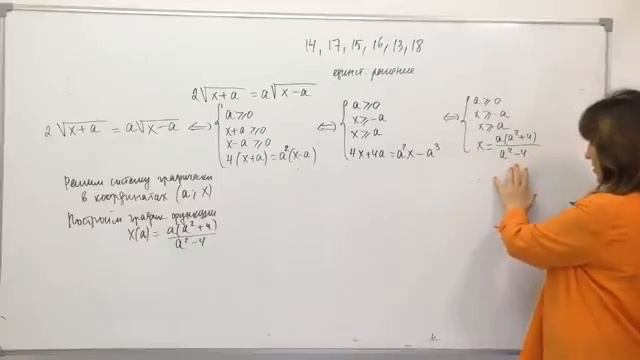 14, 17, 15, 16, 13, 18
единст. решение
2√(x+a) = a√(x-a)
2√(x+a) = a√(x-a) ⇔ { a ≥ 0
x+a ≥ 0
x-a ≥ 0
4(x+a) = a²(x-a)
⇔ { a ≥ 0
x ≥ -a
x ≥ a
4x+4a = a²x - a³
⇔ { a ≥ 0
x ≥ -a
x ≥ a
x = a(a²+4)/(a²-4)
Решим систему графически
в координатах (a; x)
Построим график функции
x(a) = a(a²+4)/(a²-4)